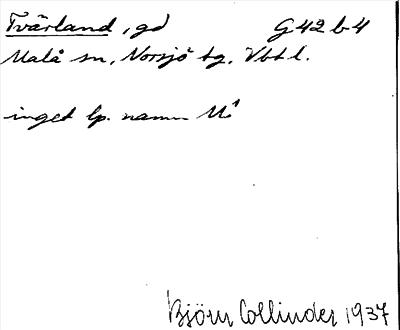 Tvärland, gd G42 b4
Malå sn, Norsjö tg, Vbtl.
inget lp. namn
Björn Collinder 1937